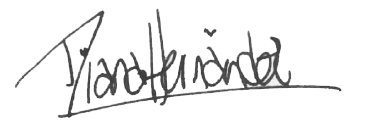 Diana Hernández